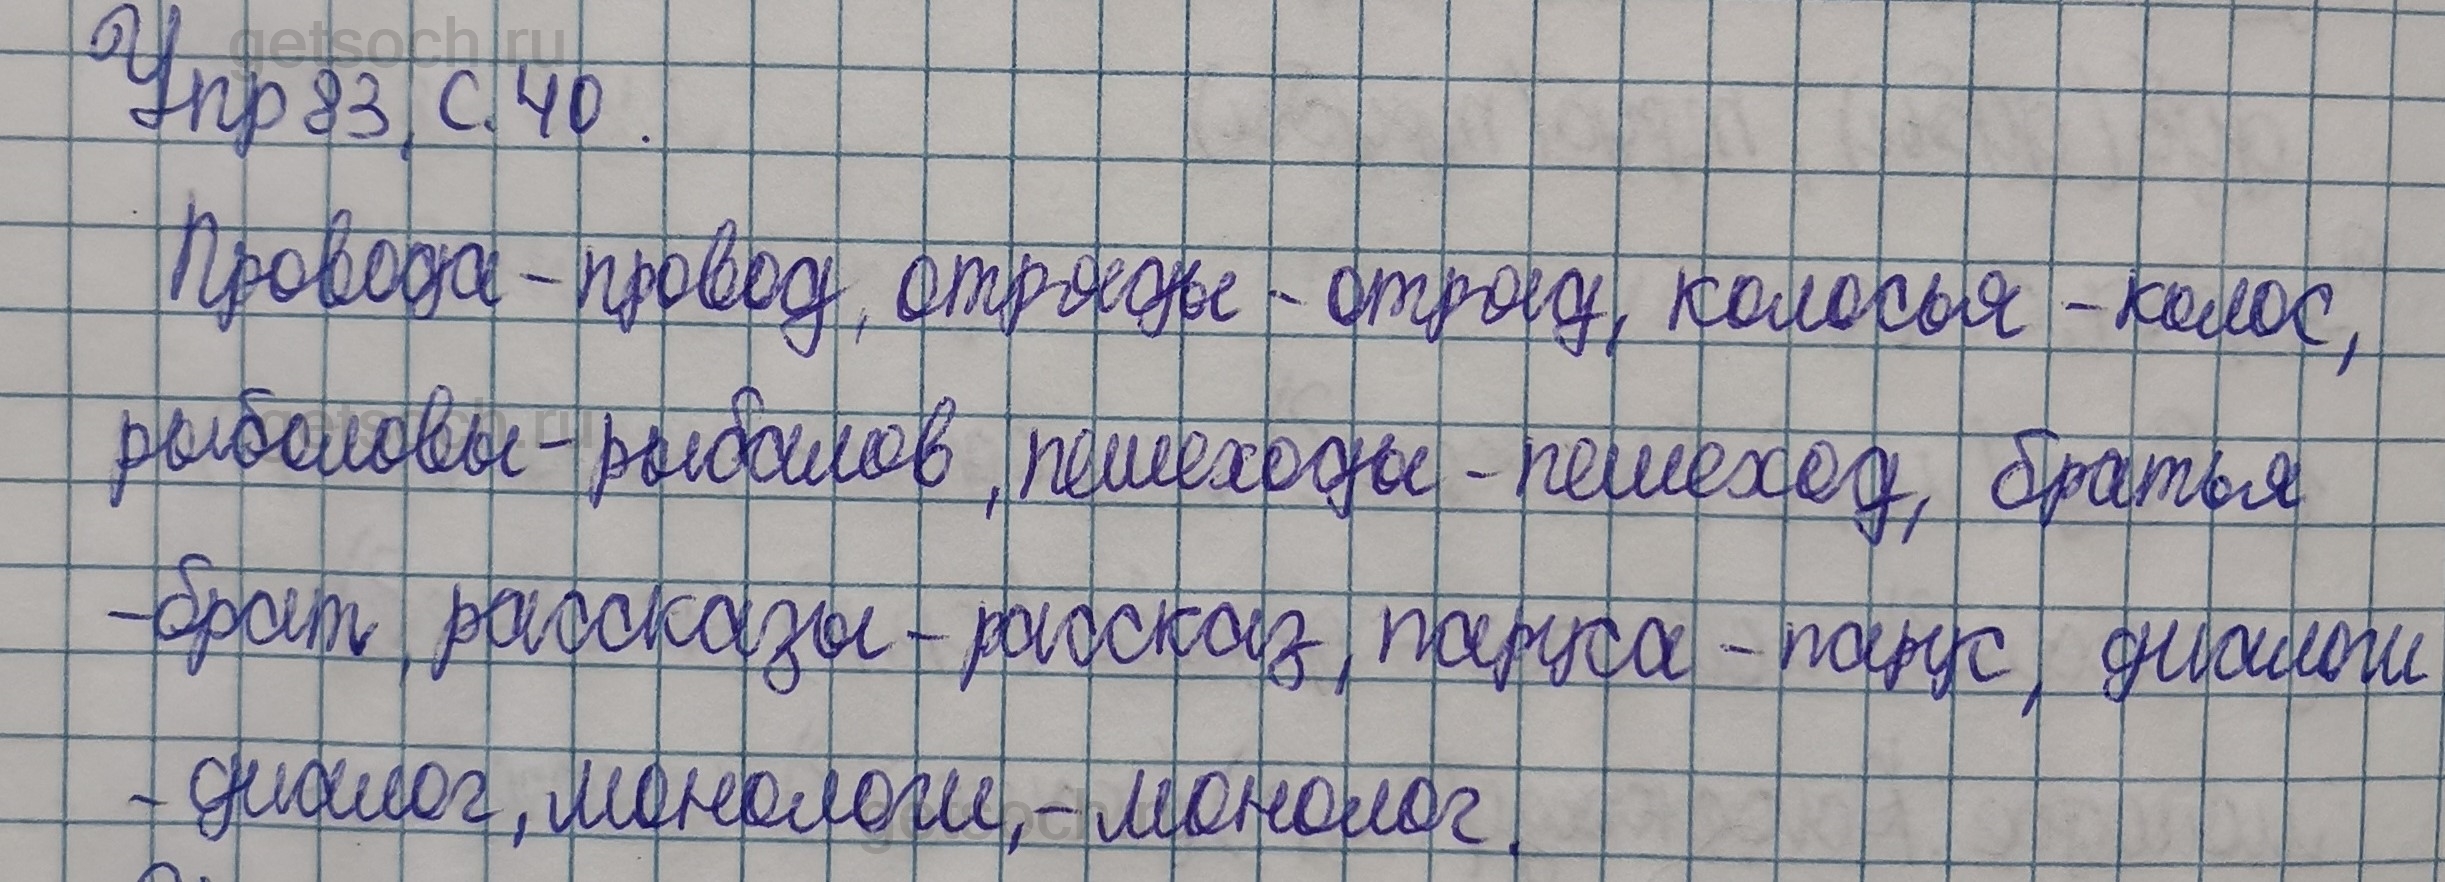 Упр 83, с. 40.
Провода - провод, отряды - отряд, колосья - колос,
рыболовы - рыболов, пешеходы - пешеход, братья
- брат, рассказы - рассказ, паруса - парус, диалоги
- диалог, монологи, - монолог.
getsoch.ru
getsoch.ru
getsoch.ru